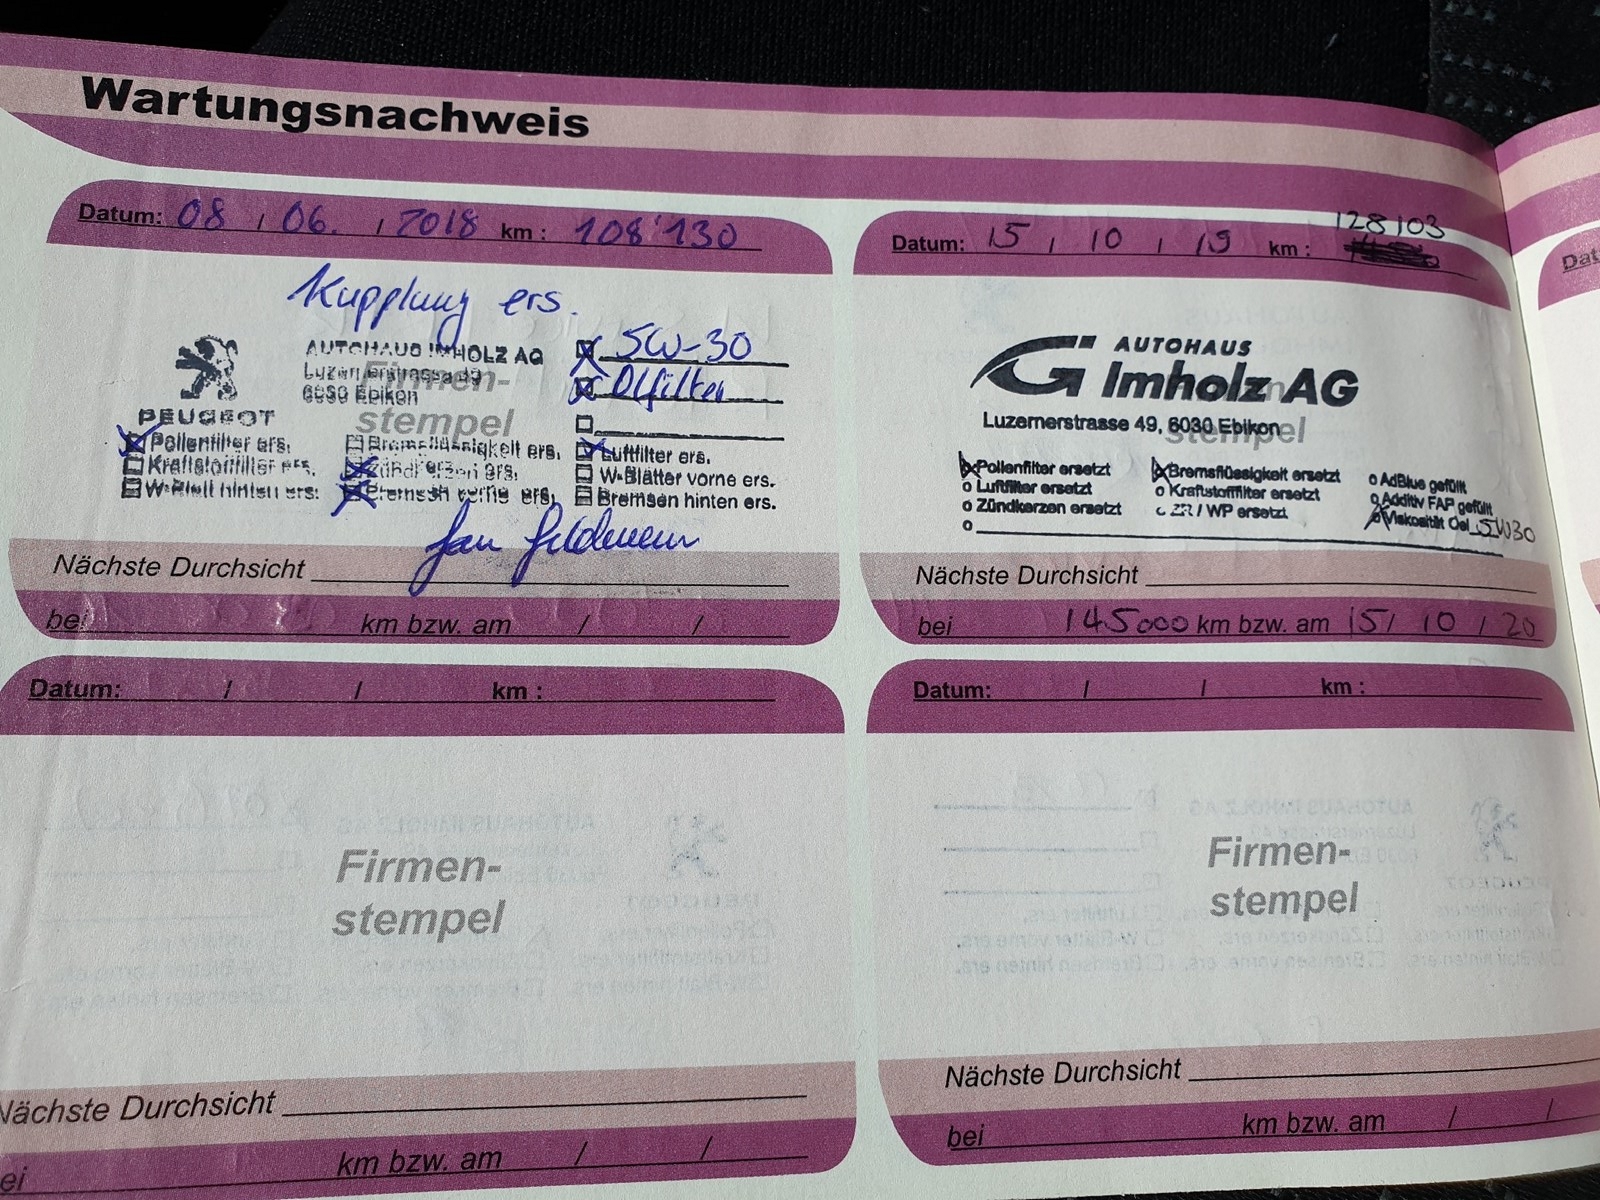 Wartungsnachweis
Datum: 08 / 06. / 2018 km : 108'130
Kupplung ers.
AUTOHAUS IMHOLZ AG
Luzernerstrasse 49
6030 Ebikon
PEUGEOT
Firmen-
stempel
5W-30
Ölfilter
Pollenfilter ers.
Bremsflüssigkeit ers.
Luftfilter ers.
Kraftstofffilter ers.
Zündkerzen ers.
W-Blätter vorne ers.
W-Blatt hinten ers.
Bremsen vorne ers.
Bremsen hinten ers.
Nächste Durchsicht
bei km bzw. am / /
Datum: 15 / 10 / 19 km : 128103
AUTOHAUS
Imholz AG
Luzernerstrasse 49, 6030 Ebikon
stempel
Pollenfilter ersetzt
Bremsflüssigkeit ersetzt
o AdBlue gefüllt
o Luftfilter ersetzt
o Kraftstofffilter ersetzt
o Additiv FAP gefüllt
o Zündkerzen ersetzt
o ZR / WP ersetzt
Viskosität Oel 5W30
o
Nächste Durchsicht
bei 145000 km bzw. am 15 / 10 / 20
Datum: / / km :
Firmen-
stempel
Nächste Durchsicht
ei km bzw. am / /
Datum: / / km :
Firmen-
stempel
Nächste Durchsicht
bei km bzw. am / /
Dat